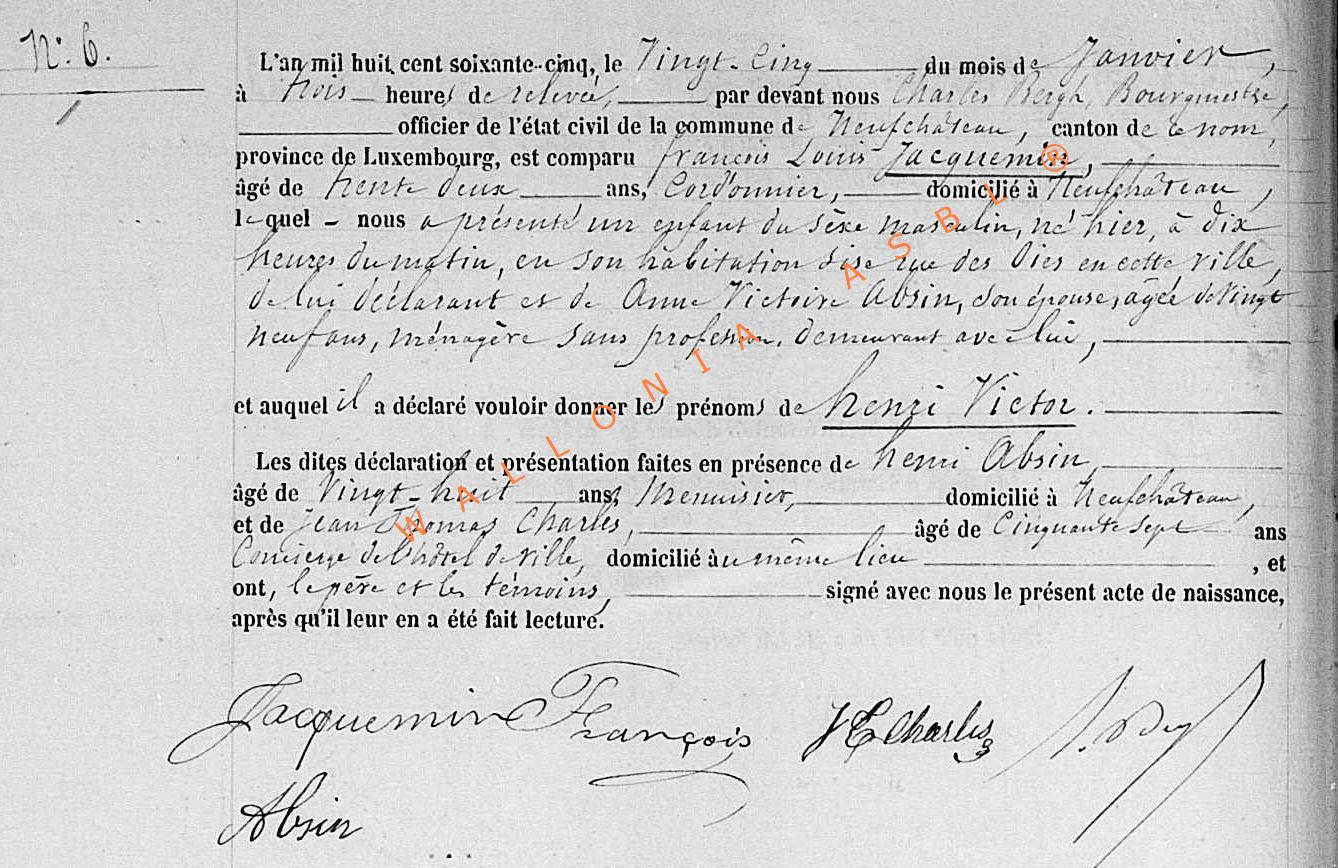 N° 6.
L'an mil huit cent soixante-cinq, le Vingt-Cinq du mois de Janvier,
à trois heures de relevée, par devant nous Charles Bergh, Bourgmestre,
officier de l'état civil de la commune de Neufchâteau, canton de ce nom,
province de Luxembourg, est comparu françois Louis Jacquemin,
âgé de trente deux ans, Cordonnier, domicilié à Neufchâteau,
lequel - nous a présenté un enfant du sèxe masculin, né hier, à dix
heures du matin, en son habitation sise rue des Dies en cette ville,
de lui déclarant et de Anne Victoire Absin, son épouse, agée de Vingt
neuf ans, ménagère sans profession, demeurant avec lui,
et auquel il a déclaré vouloir donner les prénoms de henri Victor.
Les dites déclaration et présentation faites en présence de henri Absin,
âgé de Vingt-huit ans, Menuisier, domicilié à Neufchâteau,
et de Jean Thomas Charles, âgé de Cinquante Sept ans
Concierge de l'hôtel de ville, domicilié au même lieu, et
ont, le père et les témoins, signé avec nous le présent acte de naissance,
après qu'il leur en a été fait lecture.
Jacquemin François JT Charles
Absin
WALLONIA ASBL ®